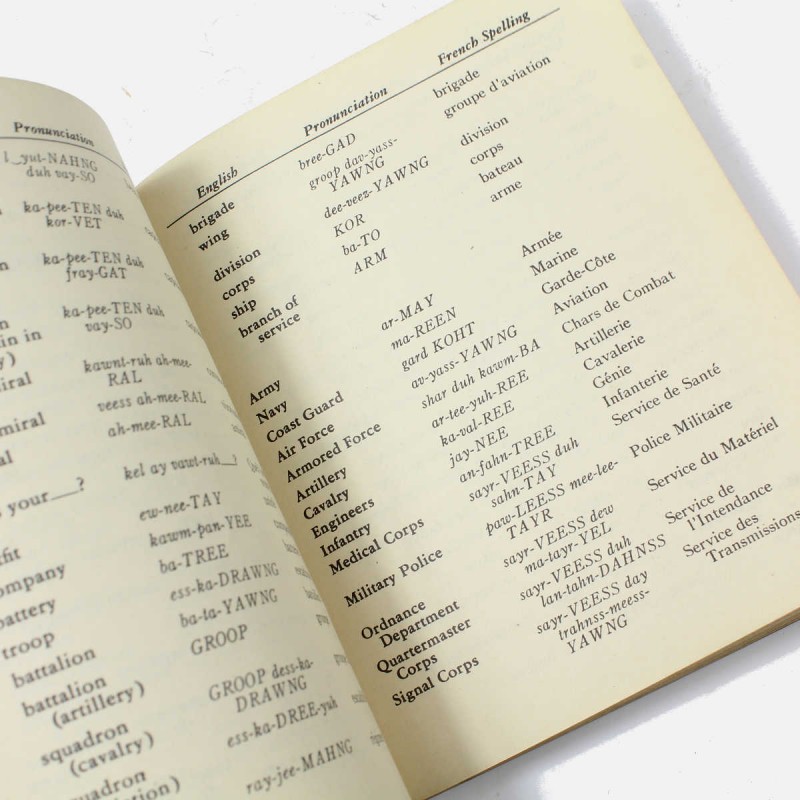 Pronunciation
l_yut-NAHNG
duh vay-SO
ka-pee-TEN duh
kor-VET
ka-pee-TEN duh
fray-GAT
ka-pee-TEN duh
vay-SO
kawnt-ruh ah-mee-
RAL
veess ah-mee-RAL
ah-mee-RAL
your___? kel ay vawt-ruh__?
ew-nee-TAY
kawm-pan-YEE
ba-TREE
troop ess-ka-DRAWNG
battalion ba-ta-YAWNG
battalion GROOP
(artillery)
squadron GROOP dess-ka-
(cavalry) DRAWNG
ess-ka-DREE-yuh
ray-jee-MAHNG
English Pronunciation French Spelling
brigade bree-GAD brigade
wing groop dav-yass- groupe d'aviation
YAWNG
division dee-veez-YAWNG division
corps KOR corps
ship ba-TO bateau
branch of ARM arme
service
Army ar-MAY Armée
Navy ma-REEN Marine
Coast Guard gard KOHT Garde-Côte
Air Force av-yass-YAWNG Aviation
Armored Force shar duh kawm-BA Chars de Combat
Artillery ar-tee-yuh-REE Artillerie
Cavalry ka-val-REE Cavalerie
Engineers jay-NEE Génie
Infantry an-fahn-TREE Infanterie
Medical Corps sayr-VEESS duh Service de Santé
sahn-TAY
Military Police paw-LEESS mee-lee- Police Militaire
TAYR
Ordnance sayr-VEESS dew Service du Matériel
Department ma-tayr-YEL
Quartermaster sayr-VEESS duh Service de
Corps lan-tahn-DAHNSS l'Intendance
Signal Corps sayr-VEESS day Service des
trahnss-meess- Transmissions
YAWNG